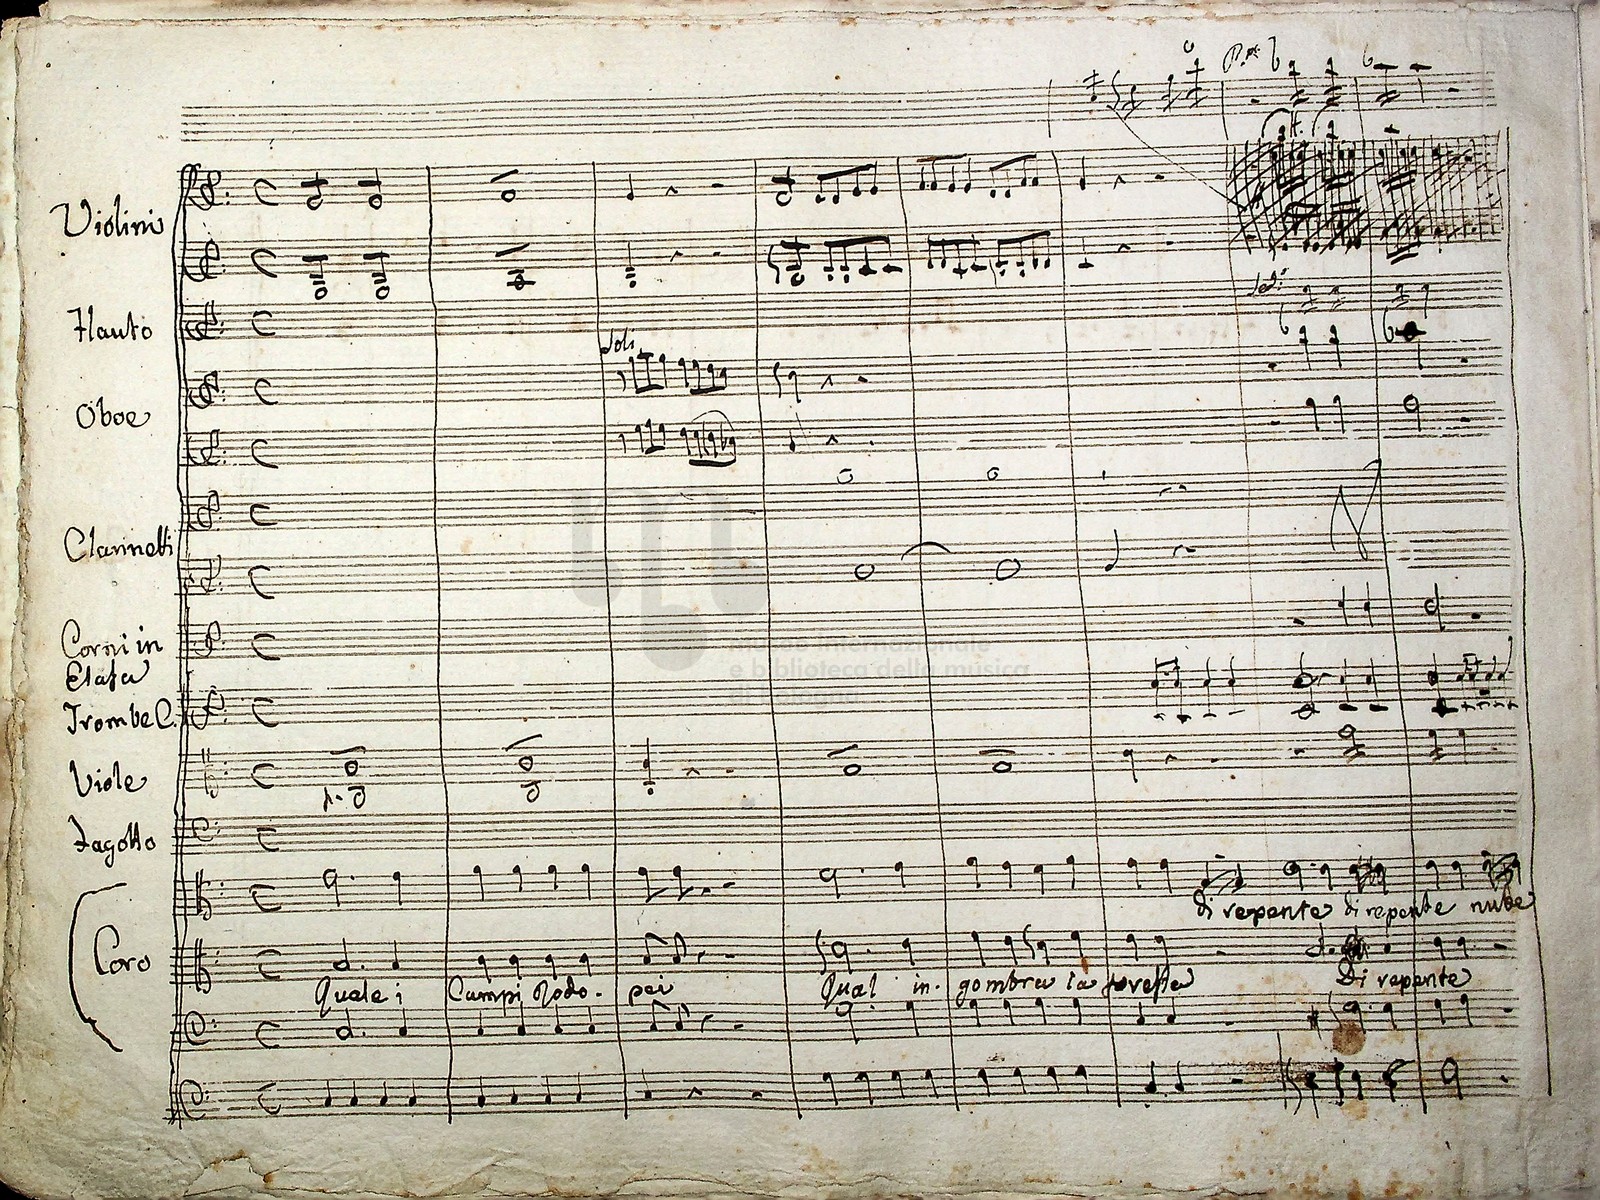 Violini
Flauto
Soli
Oboe
Clarinetti
Corni in
Elafa
Trombe C.
Viole
Fagotto
di repente di repente nube
Coro
Quale i Campi Rodo- pei Qual in- gombra la foresta Di repente
museo internazionale
e biblioteca della musica
di bologna